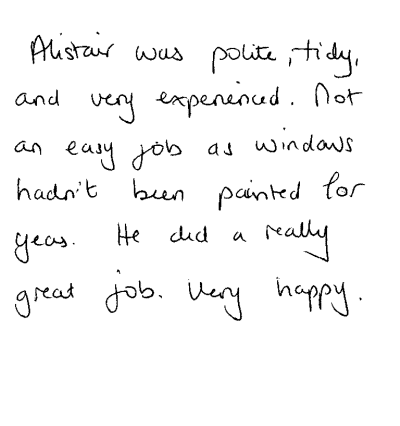 Alistair was polite, tidy,
and very experienced. Not
an easy job as windows
hadn't been painted for
yeas. He did a really
great job. Very happy.